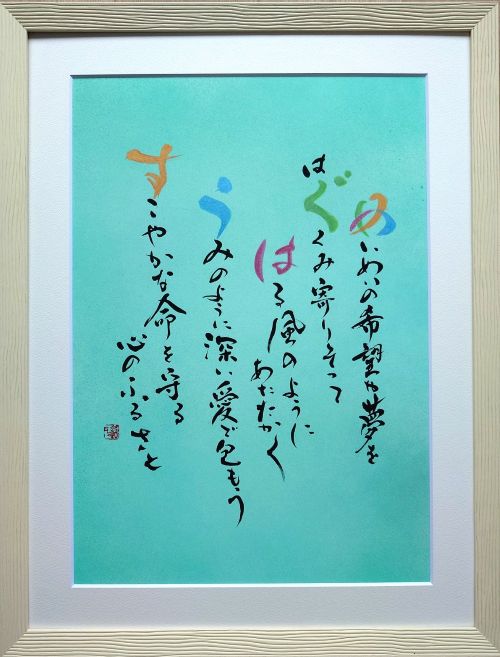 めいめいの希望や夢を
はぐくみ寄りそって
はる風のように
あたたかく
うみのように深い愛で包もう
すこやかな命を守る
心のふるさと